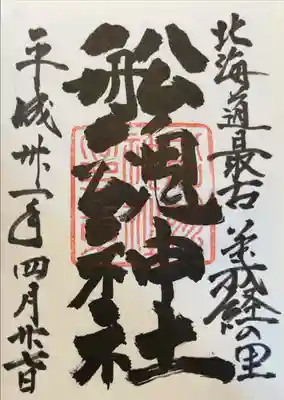 北海道最古 義経の里
船魂神社
平成卅一年四月廿七日